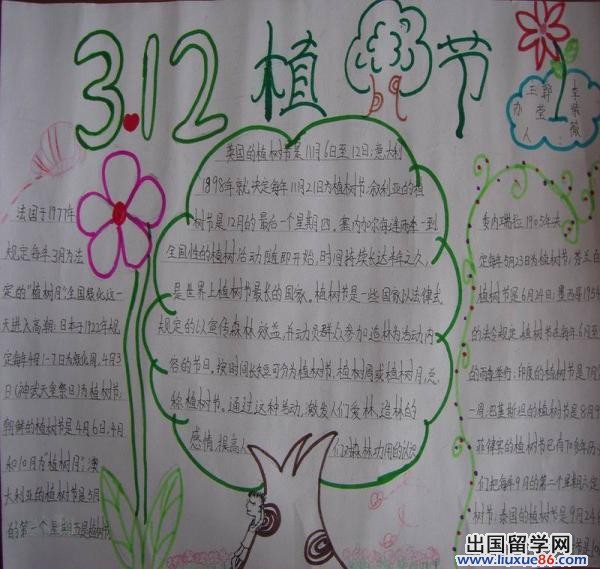 3.12 植树节
办人:
王莹
郭
李紫薇
法国于1977年
规定每年3月为法
定的"植树月",全国绿化这一
天进入高潮;日本于1922年规
定每年4月1-7日为绿化周,4月3
日(神武天皇祭日)为植树节;
朝鲜的植树节是4月6日,4月
和10月为"植树月";澳
大利亚的植树节是5月
的第一个星期五是植树节
英国的植树节是11月6日至12日;意大利
1898年就决定每年11月21日为植树节;叙利亚的植
树节是12月的最后一个星期四。塞内加尔每逢雨季一到
全国性的植树活动随即开始,时间持续长达半年之久,
是世界上植树节最长的国家。植树节是一些国家以法律式
规定的以宣传森林效益,并动员群众参加造林为活动内
容的节日。按时间长短可分为植树节,植树周或植树月,总
称植树节。通过这种活动,激发人们爱林、造林的
感情,提高人们对森林功用的认识
委内瑞拉1905年决
定每年5月23日为植树节,芬兰的
植树节是6月24日;墨西哥195
的法令规定,植树节在每年6月至
的雨季举行;印度的植树节是7月
一周,巴基斯坦的植树节是8月9
菲律宾的植树节已有70多年历
们把每年9月的第二个星期六定
树节;泰国的植树节是9月24
出国留学网
www.liuxue86.com